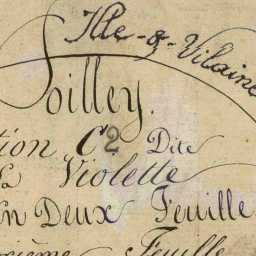 Ille-&-Vilaine
Poilley
tion C2 Dite
La Violette
En Deux Feuille
xième Feuille